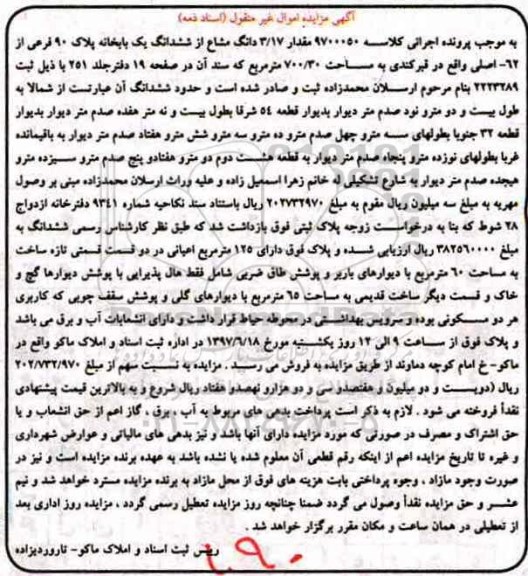 آگهی مزایده اموال غیر منقول (اسناد ذمه)
به موجب پرونده اجرائی کلاسه ۹۷۰۰۰۵۰ مقدار ۳/۱۷ دانگ مشاع از ششدانگ یک بابخانه پلاک ۹۰ فرعی از
۶۲- اصلی واقع در قیرکندی به مساحت ۷۰۰/۳۰ مترمربع که سند آن در صفحه ۱۹ دفترجلد ۲۵۱ با ذیل ثبت
۲۲۲۳۲۸۹ بنام مرحوم ارسلان محمدزاده ثبت و صادر شده است و حدود ششدانگ آن عبارتست از شمالا به
طول بیست و دو مترو نود صدم متر دیوار بدیوار قطعه ۵۴ شرقا بطول بیست و نه متر هفده صدم متر دیوار بدیوار
قطعه ۳۲ جنوبا بطولهای سه مترو چهل صدم مترو ده مترو سه مترو شش مترو هفتاد صدم متر دیوار به باقیمانده
غربا بطولهای نوزده مترو پنجاه صدم متر دیوار به قطعه هشت دوم دو مترو هفتادو پنج صدم مترو سیزده مترو
هیجده صدم متر دیوار به شارع تشکیلی له خانم زهرا اسمعیل زاده و علیه وراث ارسلان محمدزاده مبنی بر وصول
مهریه به مبلغ سه میلیون ریال مقوم به مبلغ ۲۰۲۷۳۲۹۷۰ ریال باستناد سند نکاحیه شماره ۹۳۴۱ دفترخانه ازدواج
۲۸ شوط که بنا به درخواست زوجه پلاک ثبتی فوق بازداشت شد که طبق نظر کارشناس رسمی ششدانگ به
مبلغ ۳۸۲۵۶۰۰۰۰ ریال ارزیابی شده و پلاک فوق دارای ۱۲۵ مترمربع اعیانی در دو قسمت قسمتی تازه ساخت
به مساحت ۶۰ مترمربع با دیوارهای باربر و پوشش طاق ضربی شامل فقط هال پذیرایی با پوشش دیوارها گچ و
خاک و قسمت دیگر ساخت قدیمی به مساحت ۶۵ مترمربع با دیوارهای گلی و پوشش سقف چوبی که کاربری
هر دو مسکونی بوده و سرویس بهداشتی در محوطه حیاط قرار داشت و دارای انشعابات آب و برق می باشد
و پلاک فوق از ساعت ۹ الی ۱۲ روز یکشنبه مورخ ۱۳۹۷/۶/۱۸ در اداره ثبت اسناد و املاک ماکو واقع در
ماکو- خ امام کوچه دماوند از طریق مزایده به فروش می رسد . مزایده به نسبت سهم از مبلغ ۲۰۲/۷۳۲/۹۷۰
ریال (دویست و دو میلیون و هفتصدو سی و دو هزارو نهصدو هفتاد ریال شروع و به بالاترین قیمت پیشنهادی
نقداً فروخته می شود . لازم به ذکر است پرداخت بدهی های مربوط به آب ، برق ، گاز اعم از حق انشعاب و یا
حق اشتراک و مصرف در صورتی که مورد مزایده دارای آنها باشد و نیز بدهی های مالیاتی و عوارض شهرداری
و غیره تا تاریخ مزایده اعم از اینکه رقم قطعی آن معلوم شده یا نشده باشد به عهده برنده مزایده است و نیز در
صورت وجود مازاد ، وجوه پرداختی بابت هزینه های فوق از محل مازاد به برنده مزایده مسترد خواهد شد و نیم
عشر و حق مزایده نقداً وصول می گردد ضمنا چنانچه روز مزایده تعطیل رسمی گردد ، مزایده روز اداری بعد
از تعطیلی در همان ساعت و مکان مقرر برگزار خواهد شد .
رییس ثبت اسناد و املاک ماکو- تارورديزاده